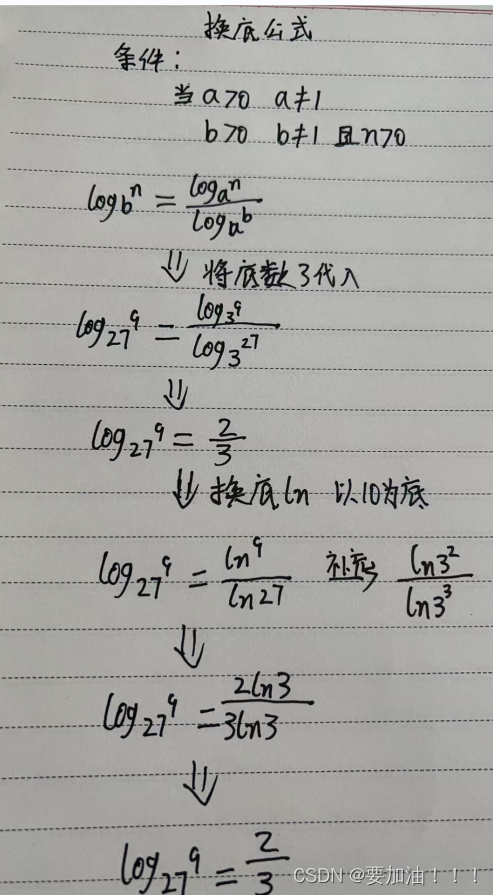 换底公式
条件：
当 a>0 a≠1
b>0 b≠1 且 n>0
log_b^n = log_a^n / log_a^b
⇓ 将底数3代入
log_27^9 = log_3^9 / log_3^27
⇓
log_27^9 = 2/3
⇓ 换底 ln 以10为底
log_27^9 = ln^9 / ln27 补充 ln3^2 / ln3^3
⇓
log_27^9 = 2ln3 / 3ln3
⇓
log_27^9 = 2/3
CSDN @要加油！！！